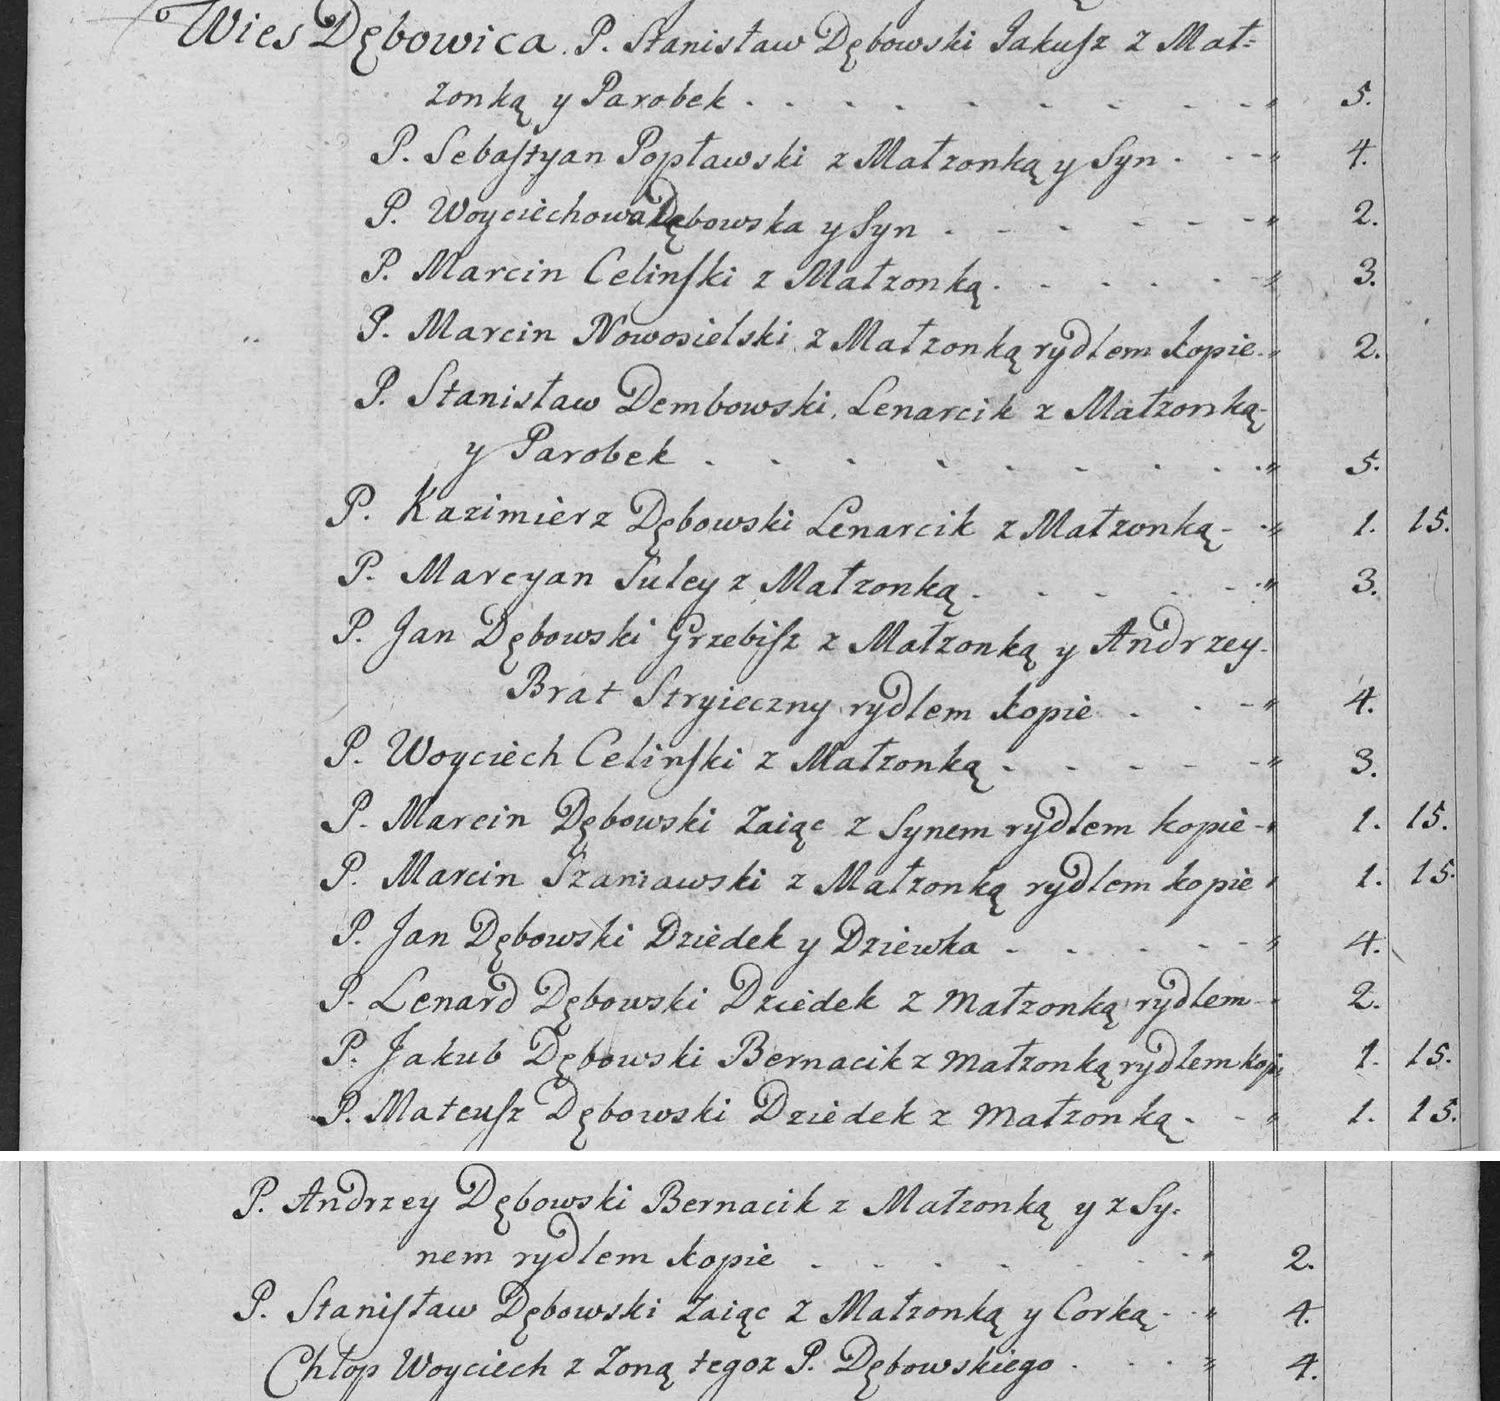 Wies Dębowica. P. Stanisław Dębowski Jakusz z Mał=
żonką y Parobek . . . . . . . . . - " 5.
P. Sebastyan Popławski z Małzonką y Syn . . - " 4.
P. Woyciechowa Dębowska y Syn . - . - - - " 2.
P. Marcin Celinski z Małzonką . . . . . - " 3.
P. Marcin Nowosielski z Małzonką rydlem kopie - " 2.
P. Stanisław Dembowski Lenarcik z Małzonką -
y Parobek . . . . . . . . . " 5.
P. Kazimierz Dębowski Lenarcik z Małzonką - - " 1. 15.
P. Marcyan Suley z Małzonką . . . . . - " 3.
P. Jan Dębowski Grzebisz z Małzonką y Andrzey -
Brat Stryieczny rydlem kopie . . - " 4.
P. Woyciech Celinski z Małzonką - - - - - " 3.
P. Marcin Dębowski Zaiąc z Synem rydlem kopie - " 1. 15.
P. Marcin Szaniawski z Małzonką rydlem kopie " 1. 15.
P. Jan Dębowski Dziedek y Dziewka - . . - - " 4.
P. Lenard Dębowski Dziedek z Małzonką rydlem - " 2.
P. Jakub Dębowski Bernacik z Małzonką rydlem kopi 1. 15.
P. Mateusz Dębowski Dziedek z Małzonką - - " 1. 15.
P. Andrzey Dębowski Bernacik z Małzonką y z Sy-
nem rydlem kopie . . . . . . - " 2.
P. Stanisław Dębowski Zaiąc z Małzonką y Corką - - " 4.
Chłop Woyciech z Zoną tegoz P. Dębowskiego . . . " 4.